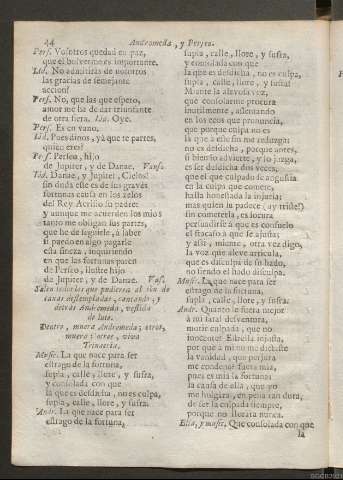 44 Andromeda, y Perseo.
Pers. Vosotros quedad en paz,
que el bolverme es importante.
Lid. No admitirás de nosotros
las gracias de semejante
accion?
Pers. No, que las que espero,
amor me ha de dar triunfante
de otra fiera. Lid. Oye.
Pers. Es en vano.
Lid. Pues dinos, yà que te partes,
quien eres?
Pers. Perseo, hijo
de Jupiter, y de Danae. Vase.
Lid. Danae, y Jupiter, Cielos!
sin duda este es de sus graves
fortunas causa en los zelos
del Rey Acrisio su padre:
y aunque me acuerden los mios
tanto me obligan sus partes,
que he de seguirle, à saber
si puedo en algo pagarle
esta fineza, inquiriendo
en que las fortunas paren
de Perseo, ilustre hijo
de Jupiter, y de Danae. Vase.
Salen todos los que pudieren al son de
caxas destempladas, cantando, y
detràs Andromeda, vestida
de luto.
Dentro, muera Andromeda; otros,
muera: otros, viva
Trinacria.
Music. La que nace para ser
estrago de la fortuna,
supla, calle, llore, y sufra,
y consolada con que
la que es desdicha, no es culpa,
supla, calle, llore, y sufra.
Andr. La que nace para ser
estrago de la fortuna,
supla, calle, llore, y sufra,
y consolada con que
la que es desdicha, no es culpa,
supla, calle, llore, y sufra!
Miente la alevosa voz,
que consolarme procura
inutilmente, assentando
en los ecos que pronuncia,
que porque culpa no es
la que à esse fin me reduzga:
no es desdicha, porque antes,
si bien lo advierte, y lo juzga,
es ser desdicha dos veces;
que el que culpado se angustia
en la culpa que comete,
halla honestada la injuria;
mas quien la padece (ay triste!)
sin cometerla, es locura
persuadirle à que es consuelo
el fracaso à que le ajusta:
y assi, miente, otra vez digo,
la voz que aleve articula,
que es disculpa de su hado,
no siendo el hado disculpa.
Music. La que nace para ser
estrago de la fortuna,
supla, calle, llore, y sufra.
Andr. Quanto le fuera mejor
à mi fatal desventura,
morir culpada, que no
inocente! Estrella injusta,
por què à mi no me dichaste
la vanidad, que perjura
me condenò? fuera mia,
pues es mia la fortuna
la causa de ella, que yo
me holgara, en pena tan dura,
de ser la culpada siempre,
porque no llorara nunca.
Ella, y music. Que consolada con que
la